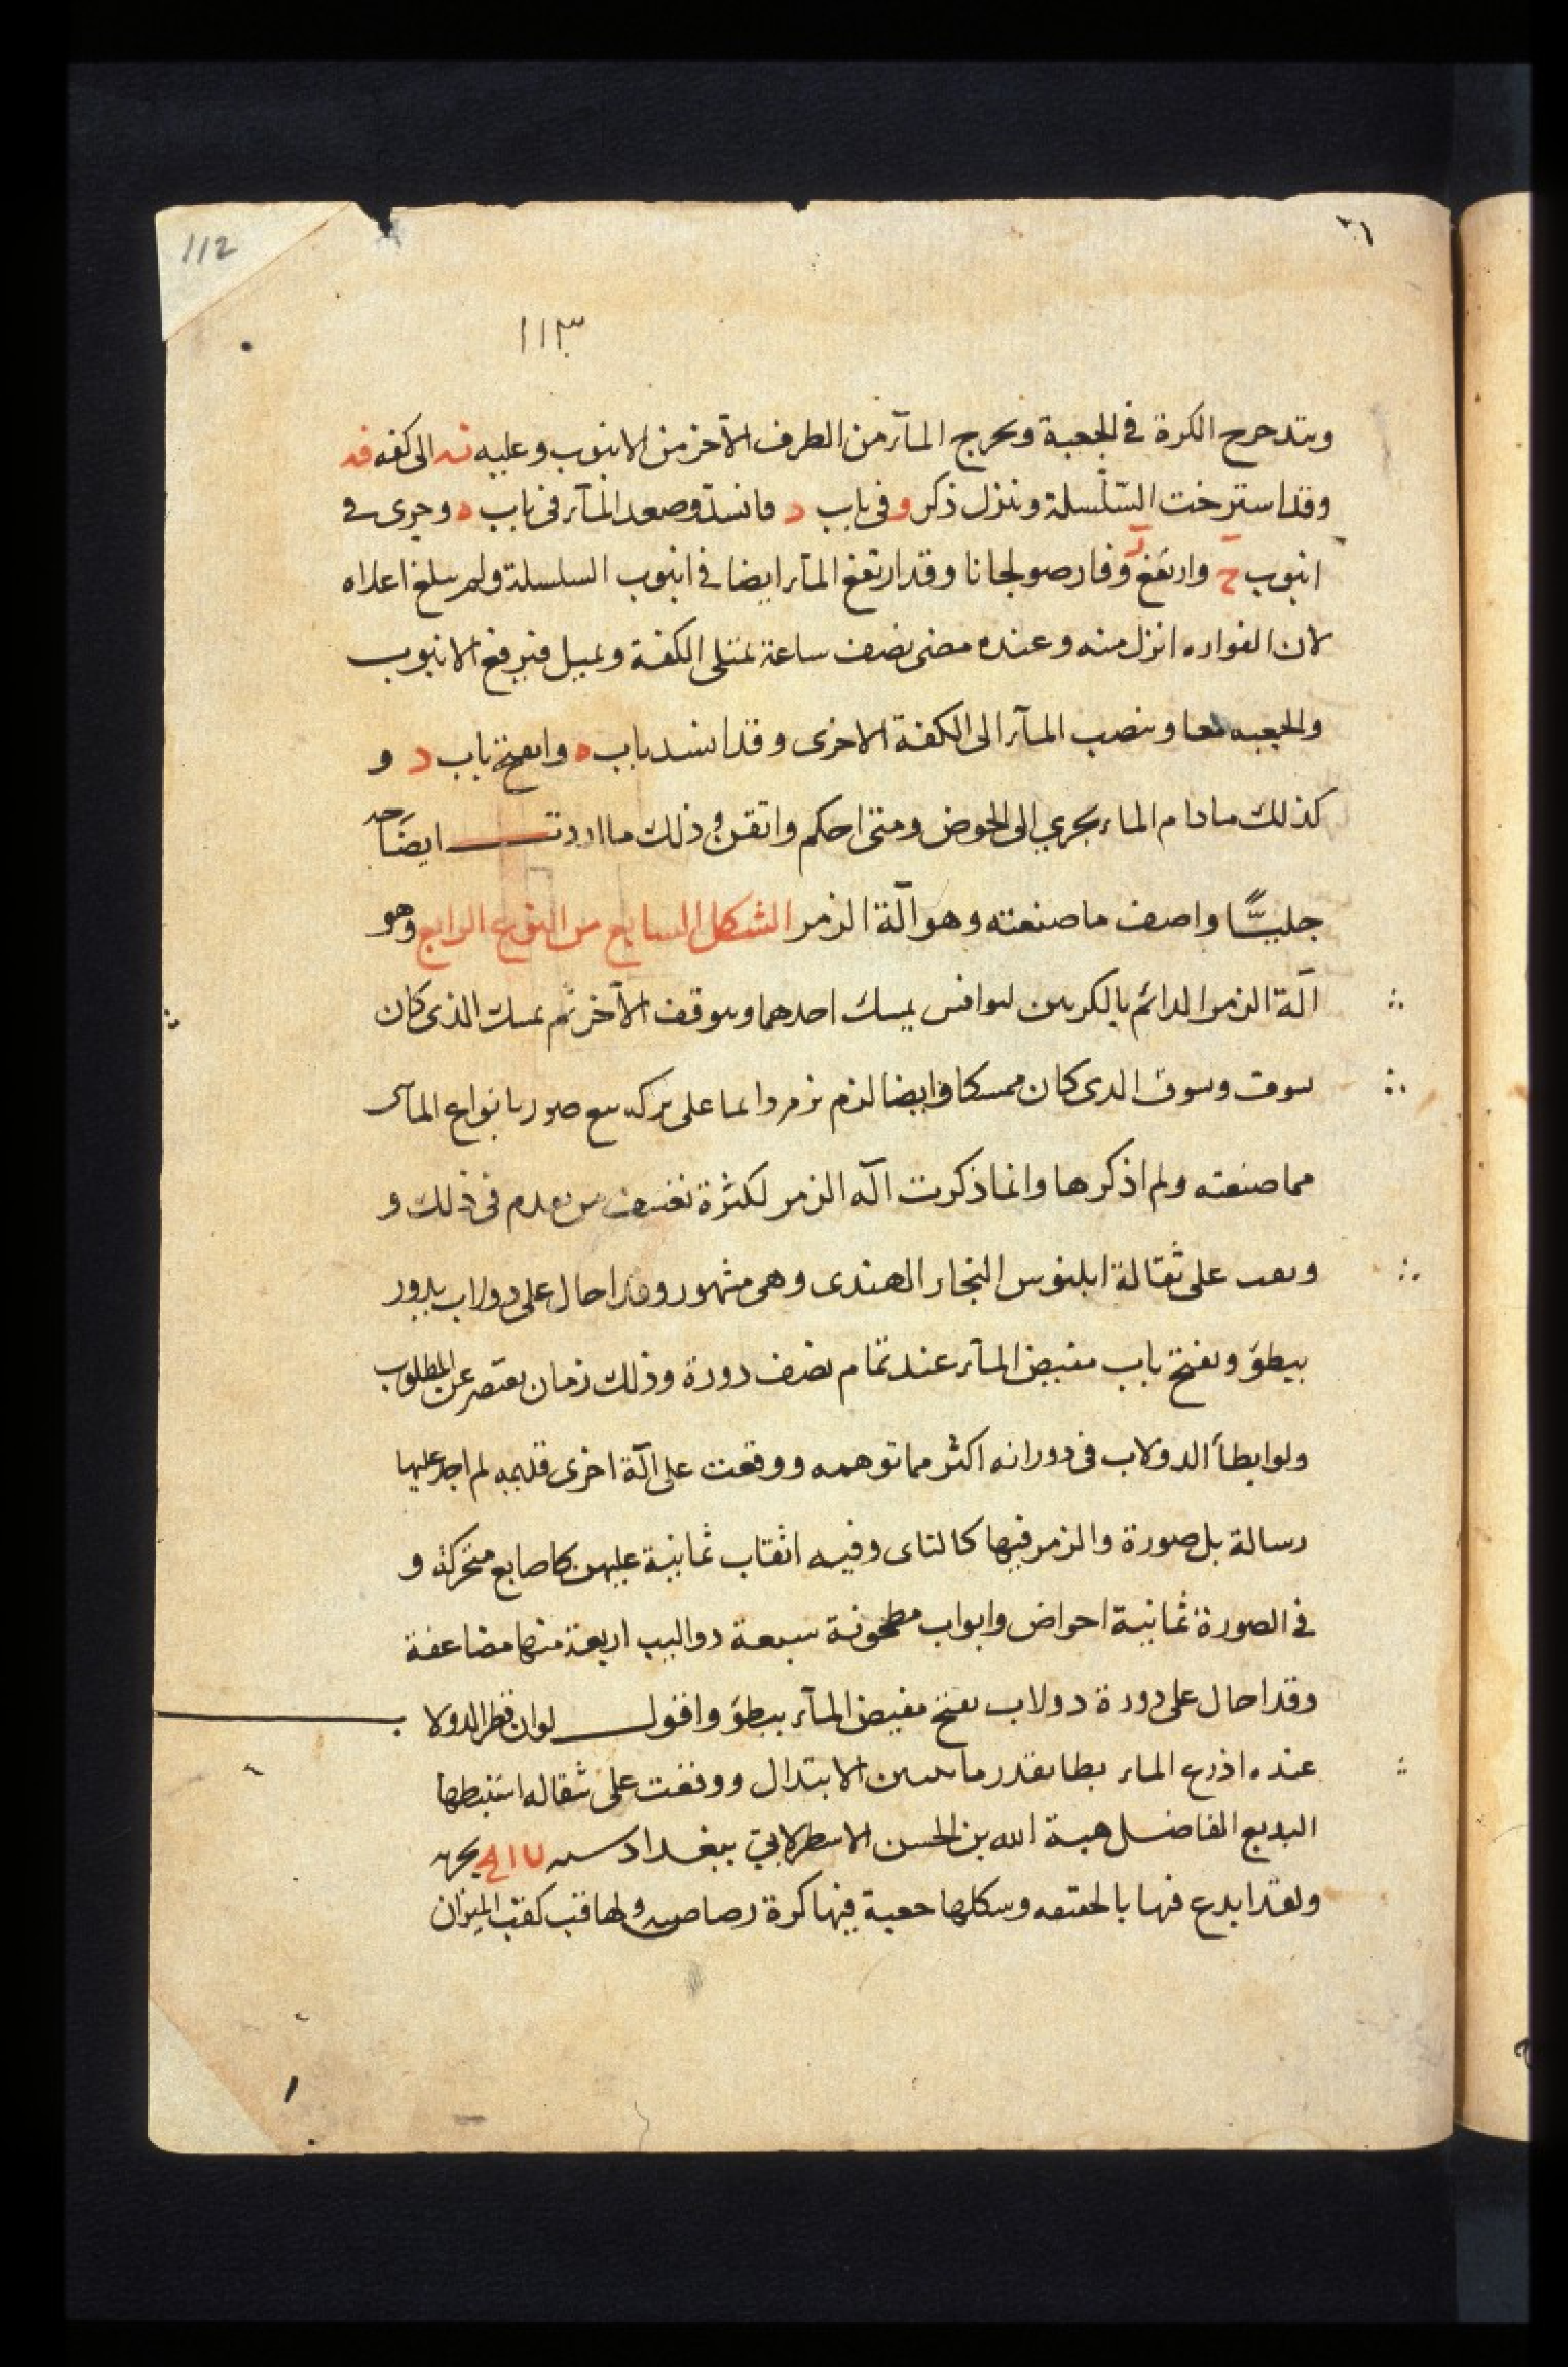 112
١١٣
وبتدحرج الكرة في الجعبة ويخرج المآء من الطرف الآخر من الانبوب وعليه الى كفه
وقد استرخت السلسلة وينزل ذكر و في باب د فانسدّ وصعد المآء في باب ه وجرى في
انبوب ح وارتفع وفار صولجانا وقد ارتفع المآء ايضا في انبوب السلسلة ولم سلغ اعلاه
لان الفواره انزل منه وعنده مضى نصف ساعة تمتلى الكفة وتميل فيرفع الانبوب
والجعبه معا وينصب المآء الى الكفة الاخرى وقد انسد باب ه وانفتح باب د و
كذلك مادام الماء يجري الى الحوض ومتى احكم واتقن ذلك ما اردت ايضاحه
جليًّا واصف ما صنعته وهو آلة الزمر الشكل السابع من النوع الرابع وهو
آلة الزمر الدائم بالكرتين يمسك احدهما ويوقف الآخر ثم يمسك الذى كان
الدى كان ممسكا وايضا على بركه بانواع المآء
مما صنعته ولم اذكرها وانما ذكرت آلة الزمر لكثرة من تقدم في ذلك و
على ثقالة ابلينوس النجار الهندى وهى مشهور وقد احال على دولاب يدور
ببطؤ ويفتح باب مغيض المآء عند تمام نصف دورة وذلك زمان يقصر عن المطلوب
ولو ابطأ الدولاب في دورانه اكثر مما توهمه ووقعت على آلة اخرى قديمه لم اجد عليها
رسالة بل صورة والزمر فيها كالناى وفيه اثقاب ثمانية عليهن كاصابع متحركة و
في الصورة ثمانية احواض وابواب مطحونة سبعة دواليب اربعة منها مضاعفة
وقد احال على دورة دولاب يفتح مغيض المآء ببطؤ واقول لو ان قطر الدولاب
عنده اذرع الماء بطا بقدر ما الابتدال ووقفت على ثقاله استنبطها
البديع الفاضل هبة الله بن الحسن الاسطرلابي ببغداد سنه
ولقد ابدع فيها بالحقيقه وشكلها جعبة فيها كرة رصاص كفتي الميزان